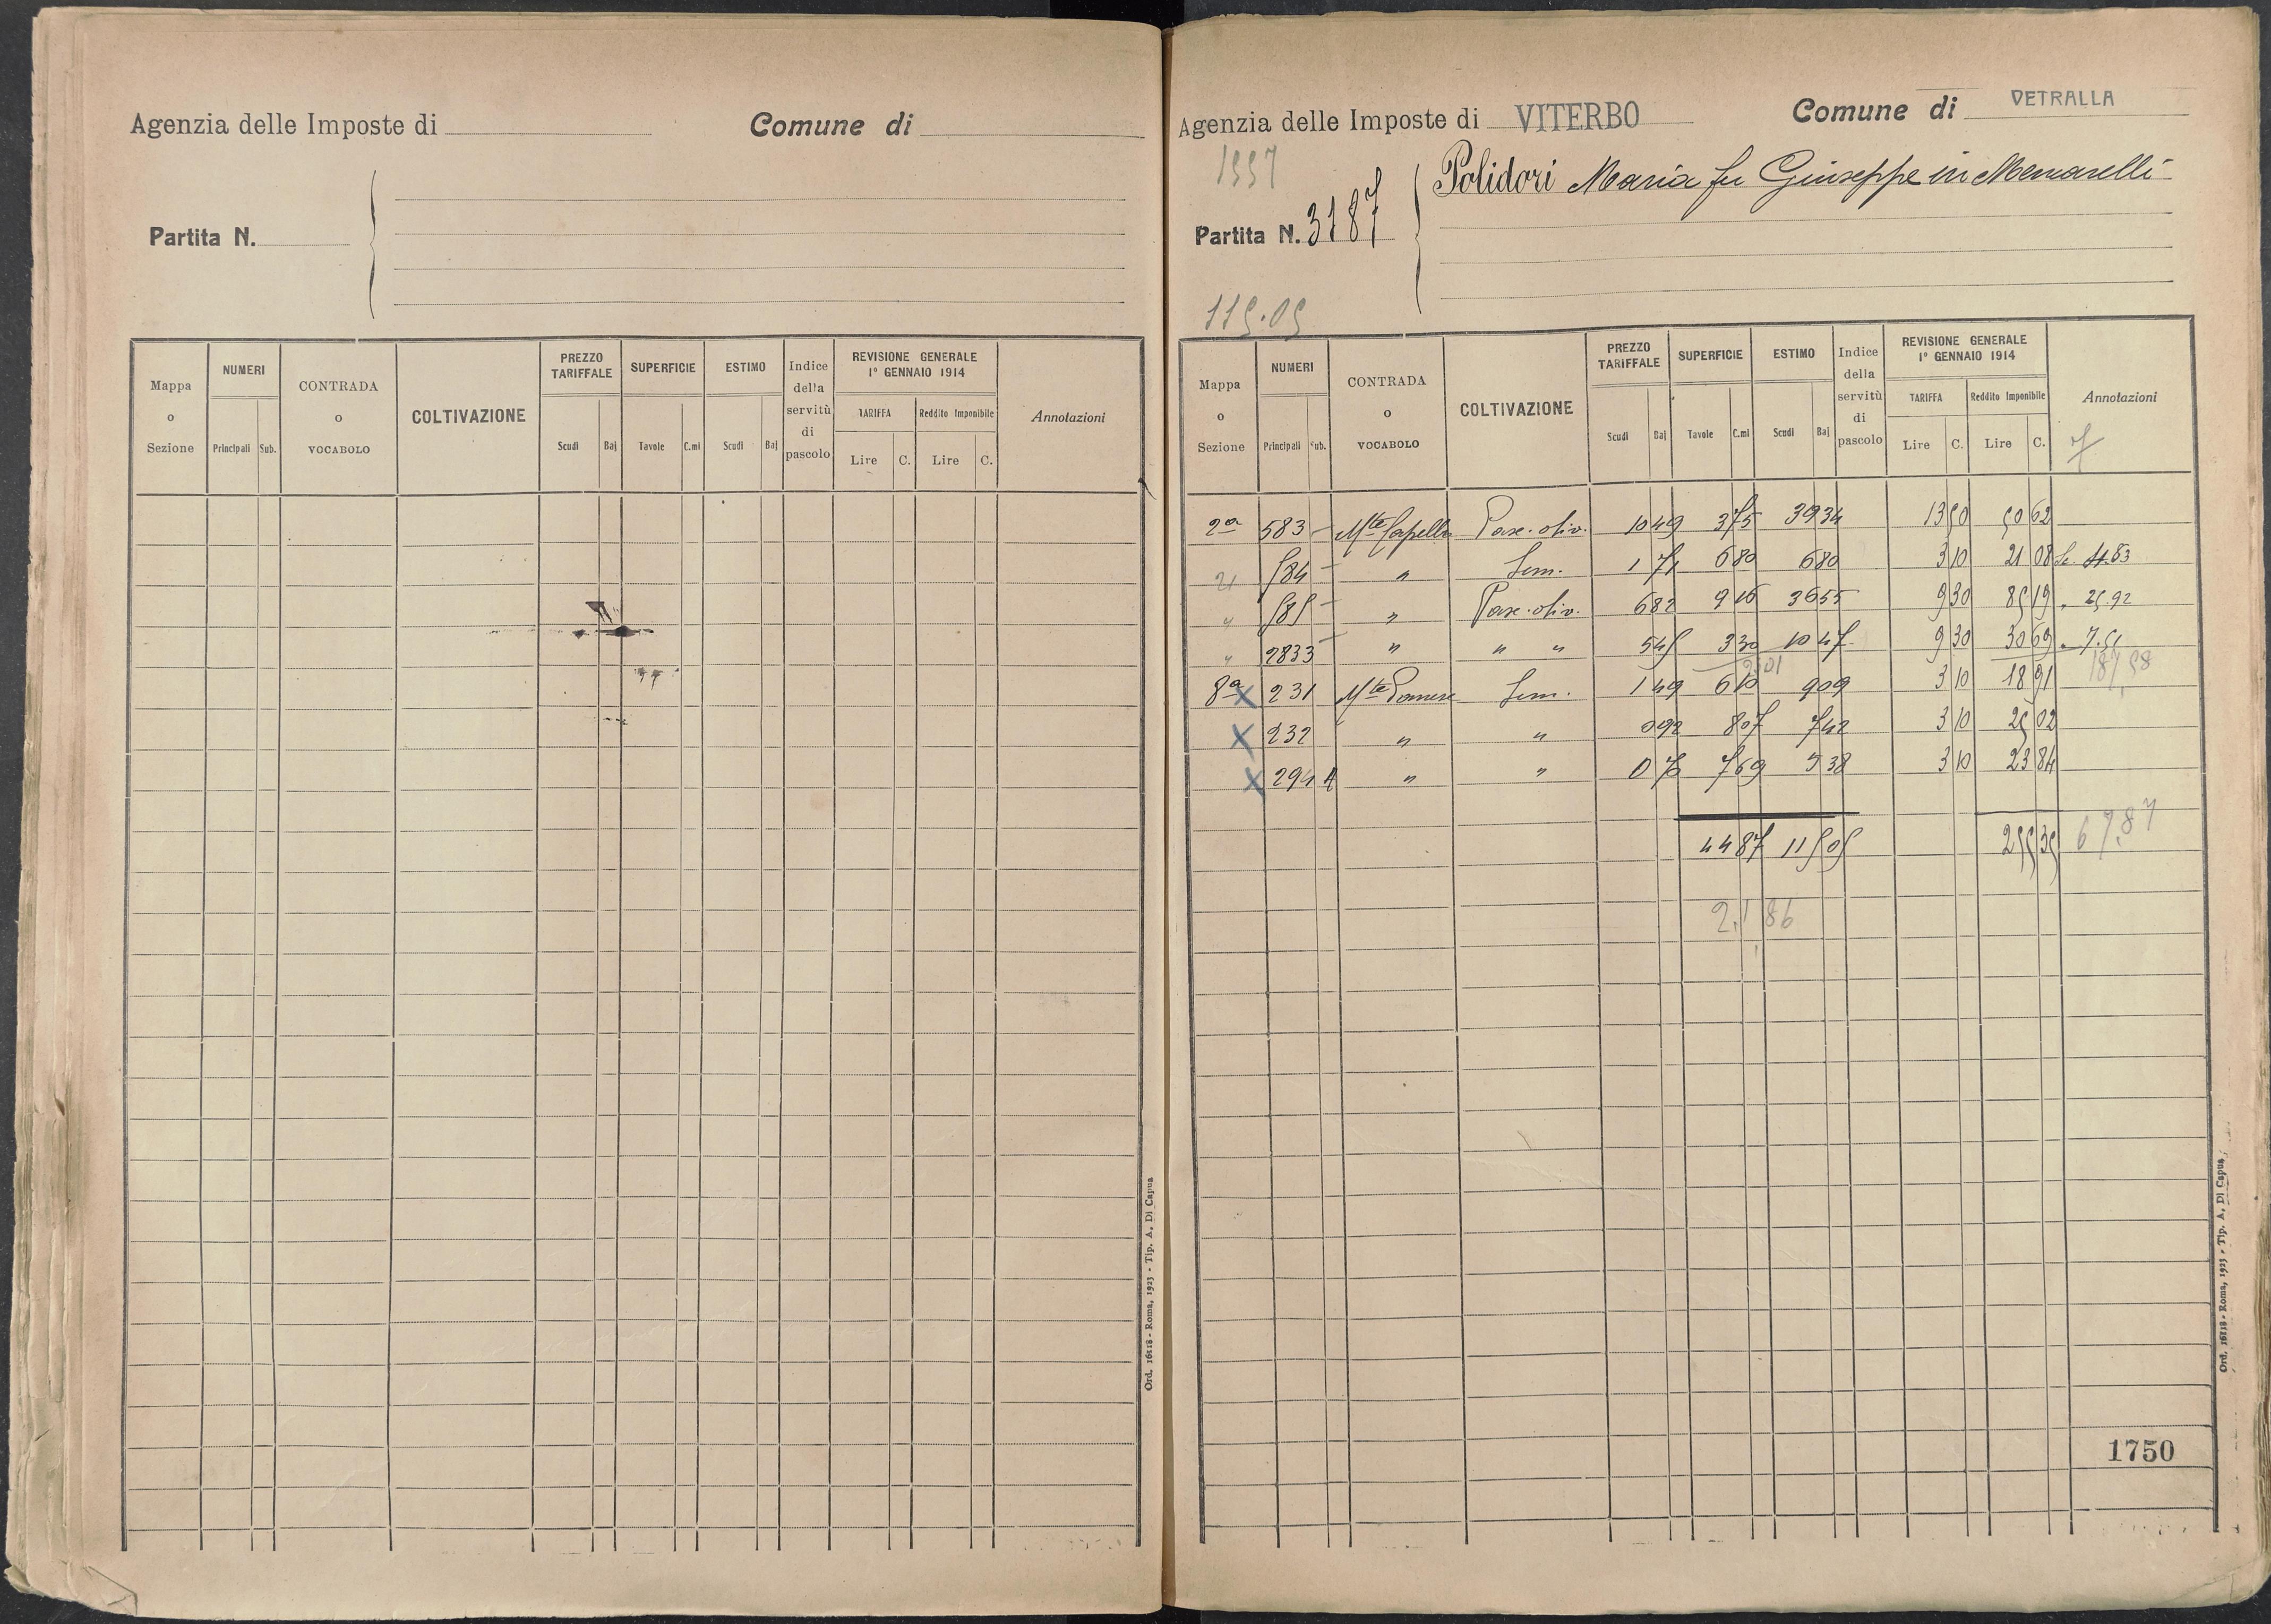 Agenzia delle Imposte di
Comune di
Partita N.
Mappa o Sezione
NUMERI
Principali Sub.
CONTRADA o VOCABOLO
COLTIVAZIONE
PREZZO TARIFFALE
Scudi Baj
SUPERFICIE
Tavole C.mi
ESTIMO
Scudi Baj
Indice della servitù di pascolo
REVISIONE GENERALE
1° GENNAIO 1914
TARIFFA
Lire C.
Reddito Imponibile
Lire C.
Annotazioni
Ord. 16118 - Roma, 1923 - Tip. A. Di Capua
Agenzia delle Imposte di VITERBO
Comune di VETRALLA
Partita N. 3187
Polidori Maria fu Giuseppe in Menarelli
115.05
Mappa o Sezione
NUMERI
Principali Sub.
CONTRADA o VOCABOLO
COLTIVAZIONE
PREZZO TARIFFALE
Scudi Baj
SUPERFICIE
Tavole C.mi
ESTIMO
Scudi Baj
Indice della servitù di pascolo
REVISIONE GENERALE
1° GENNAIO 1914
TARIFFA
Lire C.
Reddito Imponibile
Lire C.
Annotazioni
2a 583 Mte Capella Pasc. oliv. 10 49 3 75 39 34 13 50 50 62
584 " Sem. 1 71 6 80 6 80 3 10 21 08
" 585 " Pasc. oliv. 6 82 9 16 36 55 9 30 85 19 " 25.92
" 2833 " " " 5 45 3 30 10 47 9 30 30 69 " 7.51
187,58
8a x 231 Mte Sem. 1 49 6 10 9 09 3 10 18 91
x 232 " " 0 92 8 07 7 42 3 10 25 02
x 294 " " 0 7 69 5 38 3 10 23 84
44 87 115 05 255 35 67.87
2.1 86
1750
Ord. 16118 - Roma, 1923 - Tip. A. Di Capua